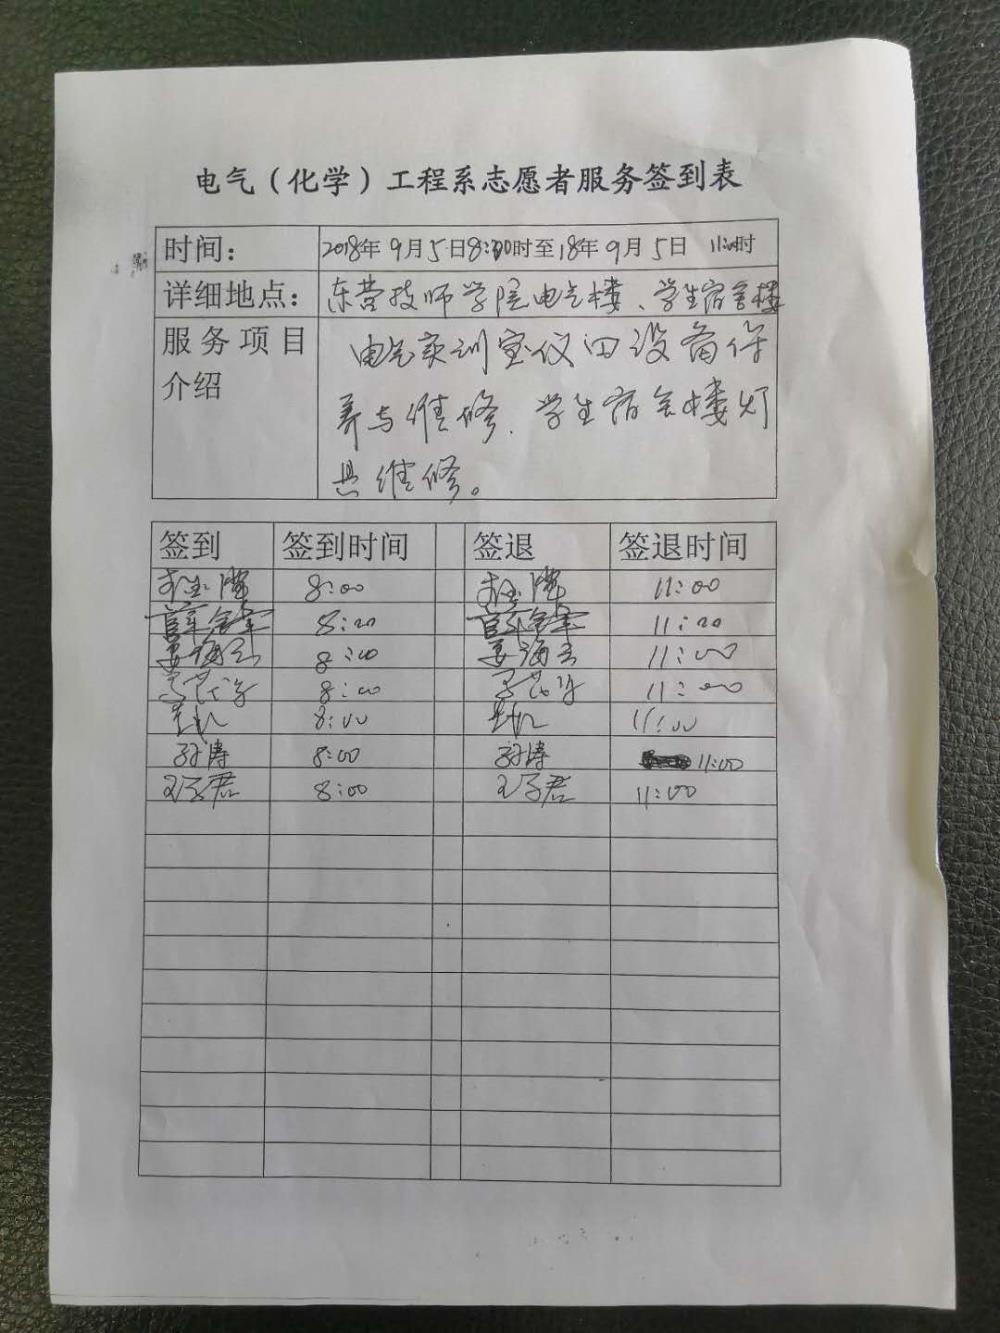 电气（化学）工程系志愿者服务签到表
时间： 2018年9月5日8:00时至18年9月5日 11:00时
详细地点： 东营技师学院电气楼、学生宿舍楼
服务项目介绍
电气实训室仪四设备保
养与维修、学生宿舍楼灯
具维修。
签到 签到时间 签退 签退时间
8:00 11:00
8:20 11:20
姜海云 8:00 姜海云 11:00
8:00 11:00
8:00 11:00
孙涛 8:00 孙涛 11:00
王子君 8:00 王子君 11:00